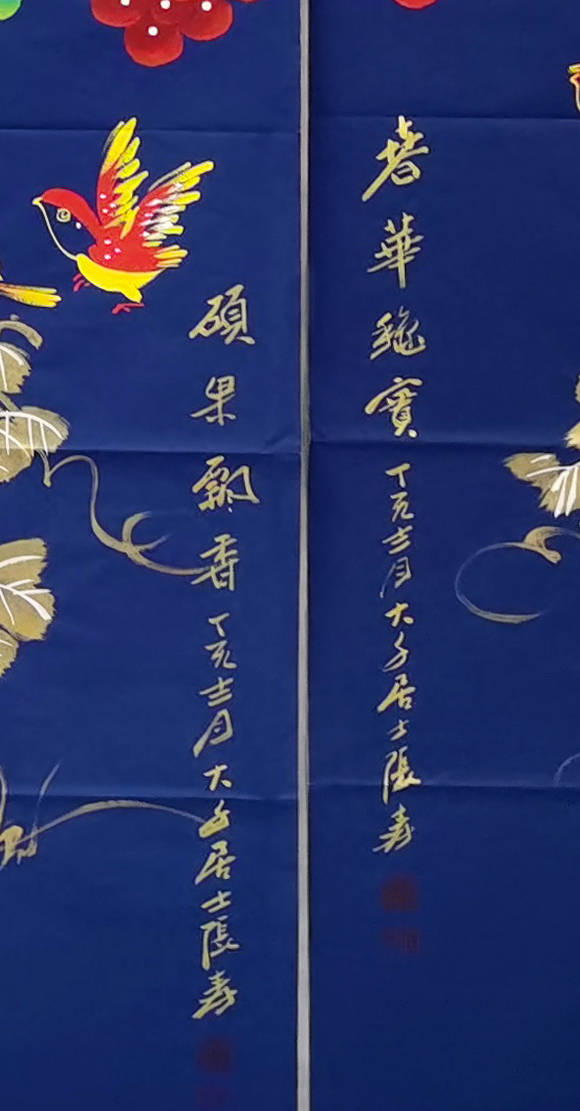 春華穐實 丁亥十二月大千居士張爰
碩果飄香 丁亥十二月大千居士張爰